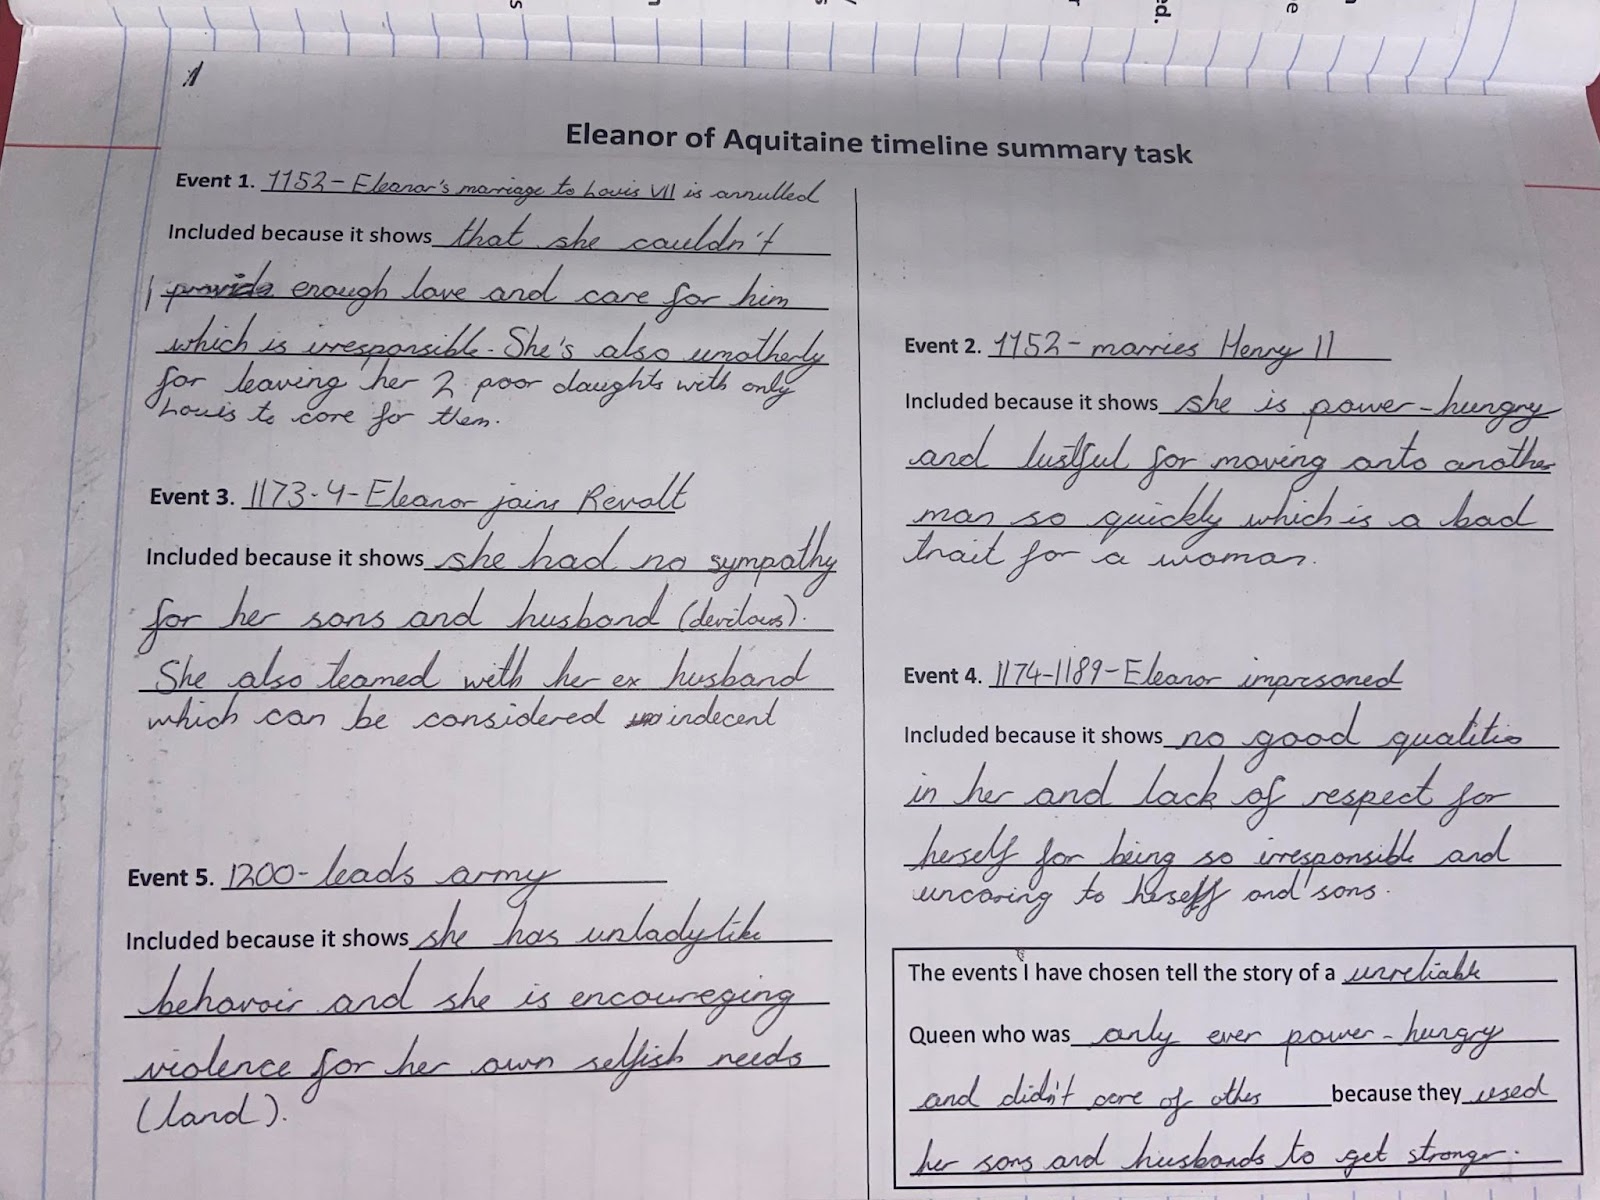 Eleanor of Aquitaine timeline summary task
Event 1. 1152- Eleanor's marriage to Louis VII is annulled
Included because it shows that she couldn't
provide enough love and care for him
which is irresponsible. She's also unotherly
for leaving her 2 poor daughts with only
Louis to care for them.
Event 2. 1152- marries Henry II
Included because it shows she is power-hungry
and lustful for moving onto another
man so quickly which is a bad
trait for a woman.
Event 3. 1173-4-Eleanor joins Revolt
Included because it shows she had no sympathy
for her sons and husband (devilous).
She also teamed with her ex husband
which can be considered indecent
Event 4. 1174-1189-Eleanor impresoned
Included because it shows no good qualities
in her and lack of respect for
herself for being so irresponsible and
uncaring to herself and sons.
Event 5. 1200-leads army
Included because it shows she has unladylike
behavoir and she is encoureging
violence for her own selfish needs
(land).
The events I have chosen tell the story of a unreliable
Queen who was only ever power-hungry
and didn't care of others because they used
her sons and husbands to get stronger.